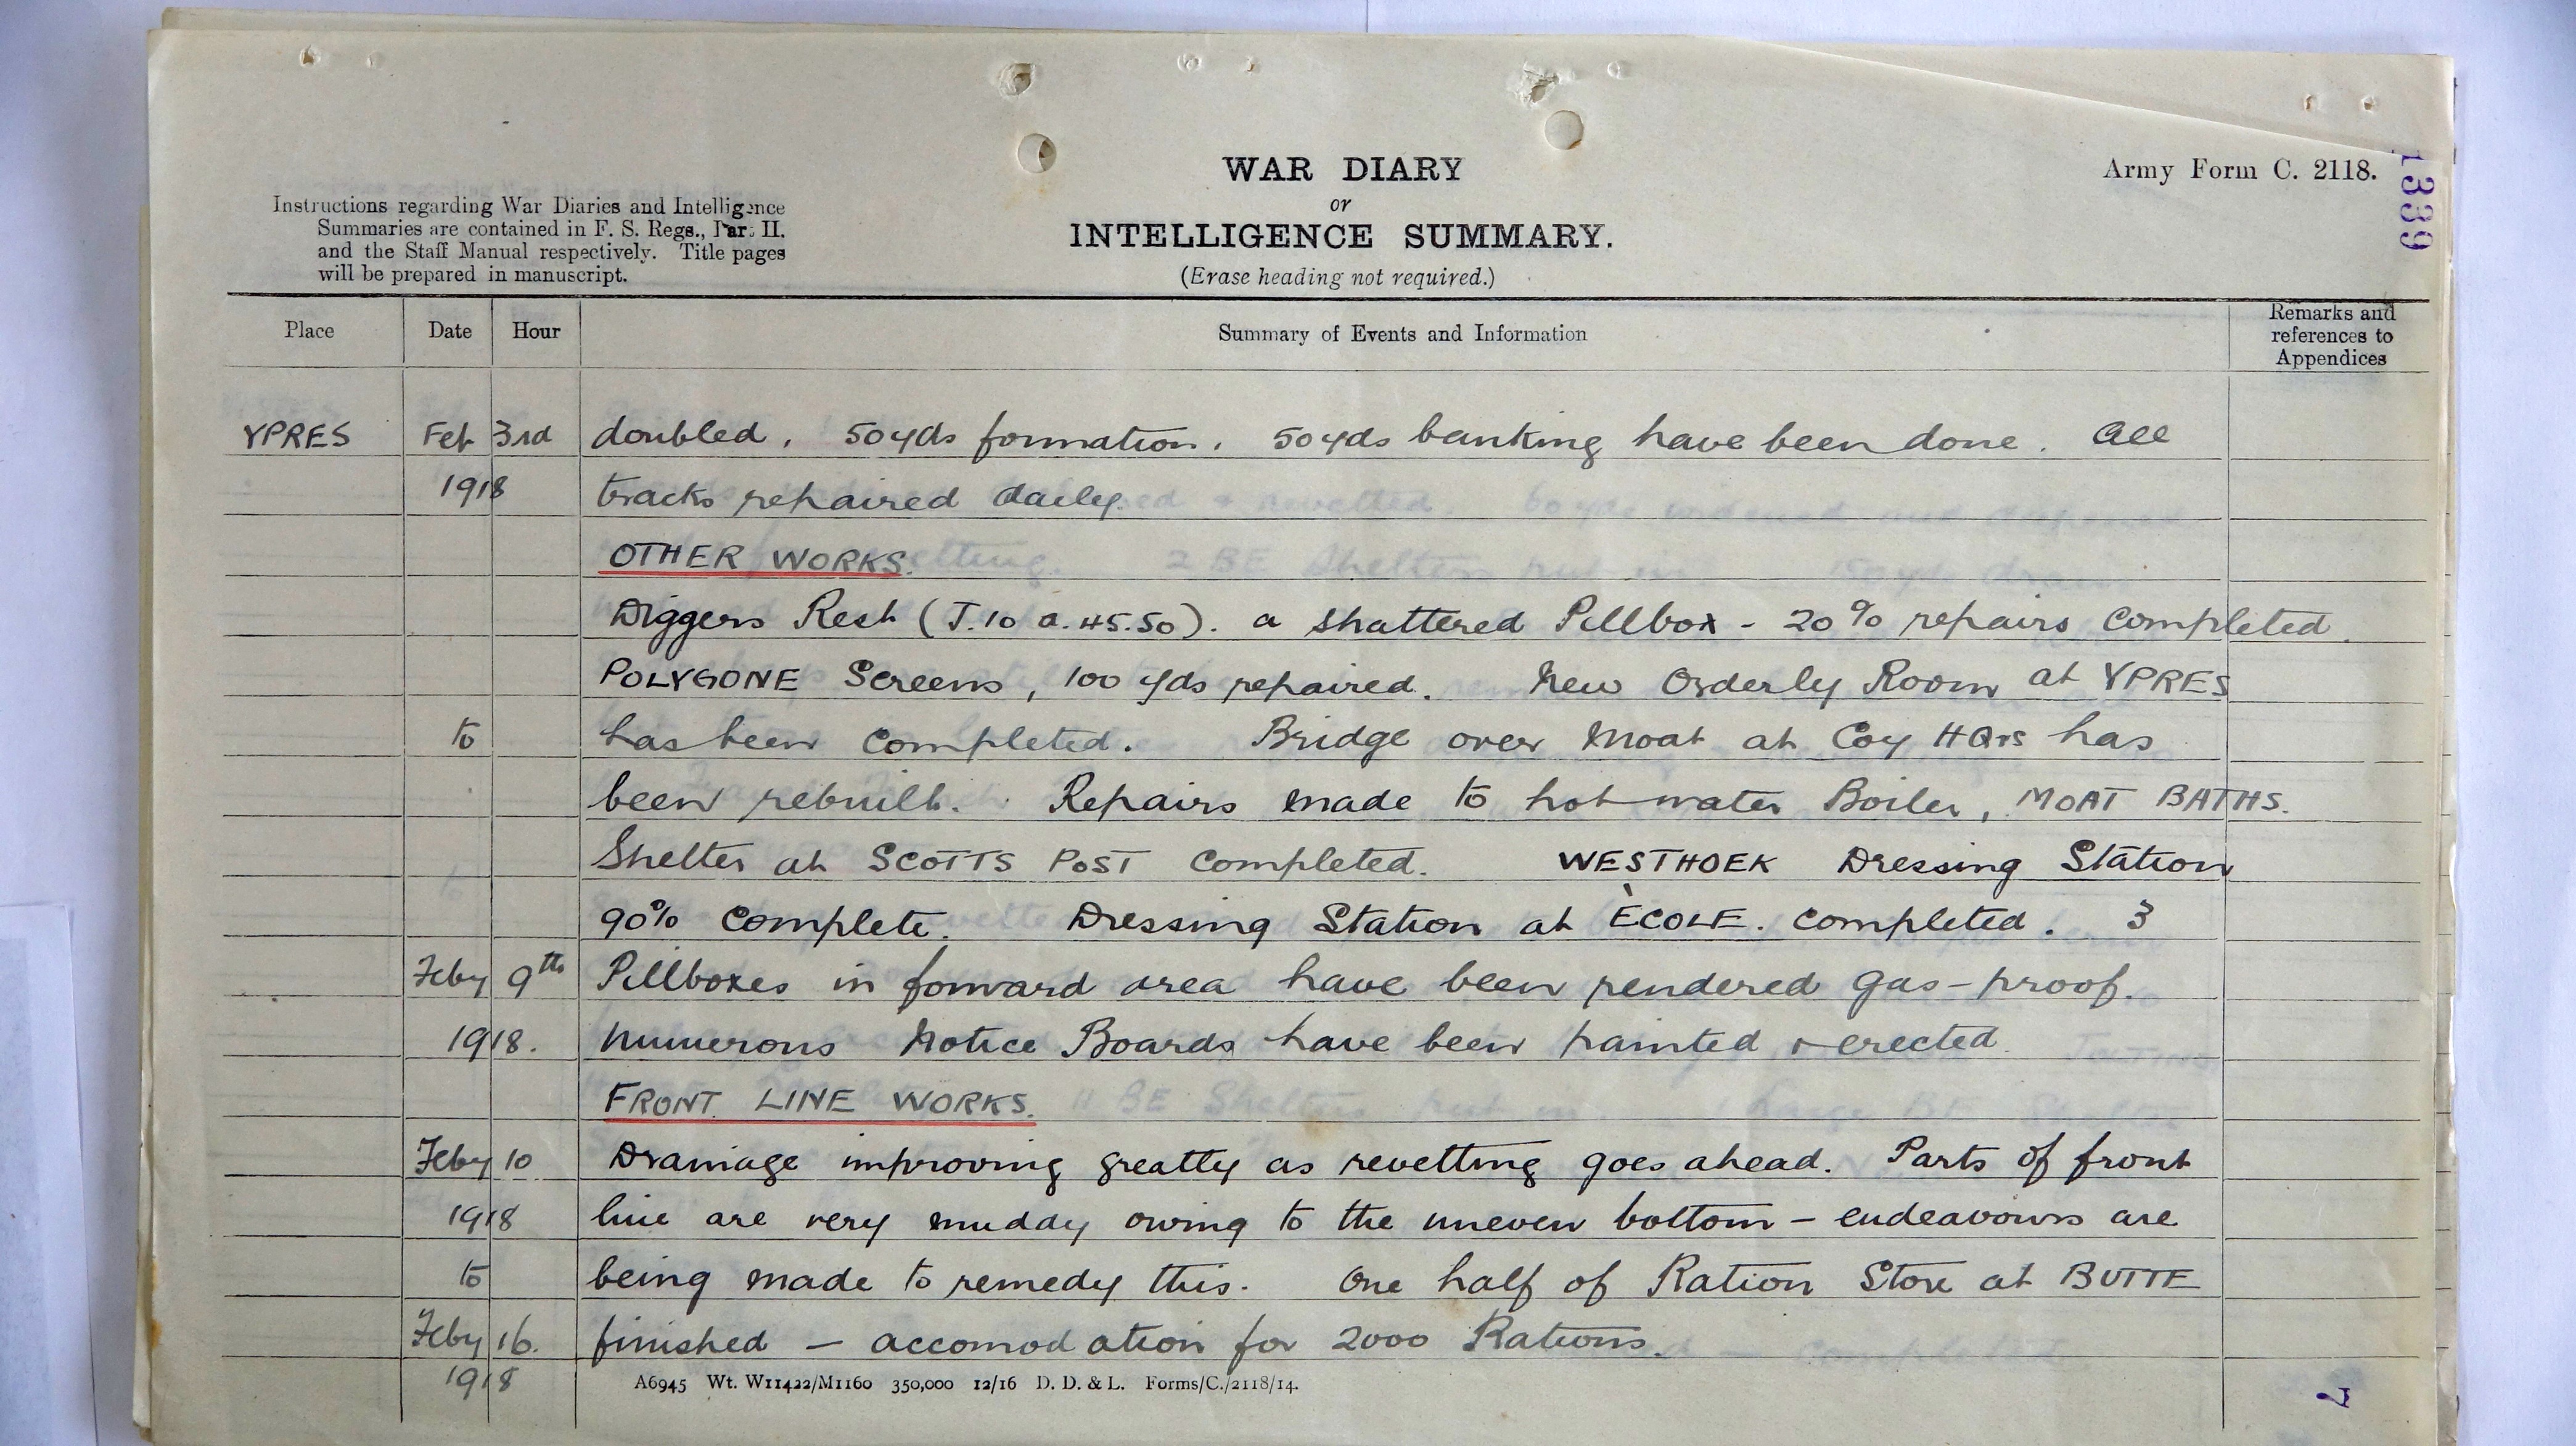 WAR DIARY
or
INTELLIGENCE SUMMARY.
(Erase heading not required.)
Army Form C. 2118.
1339
Instructions regarding War Diaries and Intelligence
Summaries are contained in F. S. Regs., Part II.
and the Staff Manual respectively. Title pages
will be prepared in manuscript.
Place Date Hour Summary of Events and Information Remarks and
references to
Appendices
YPRES Feb 3rd doubled, 50 yds formation, 50 yds banking have been done. All
1918 tracks repaired daily.
OTHER WORKS.
Diggers Rest (J.10 a. 45.50). a shattered Pillbox - 20% repairs completed.
POLYGONE Screens, 100 yds repaired. New Orderly Room at YPRES
to has been completed. Bridge over Moat at Coy HQrs has
been rebuilt. Repairs made to hot-water Boiler, MOAT BATHS.
Shelter at SCOTTS POST completed. WESTHOEK Dressing Station
90% complete. Dressing Station at ÈCOLE. completed. 3
Feby 9th Pillboxes in forward area have been rendered gas-proof.
1918. Numerous Notice Boards have been painted & erected.
FRONT LINE WORKS.
Feby 10 Drainage improving greatly as revetting goes ahead. Parts of front
1918 line are very muddy owing to the uneven bottom - endeavours are
to being made to remedy this. One half of Ration Store at BUTTE
Feby 16. finished - accomodation for 2000 Rations.
1918
A6945 Wt. W11422/M1160 350,000 12/16 D. D. & L. Forms/C./2118/14.
7